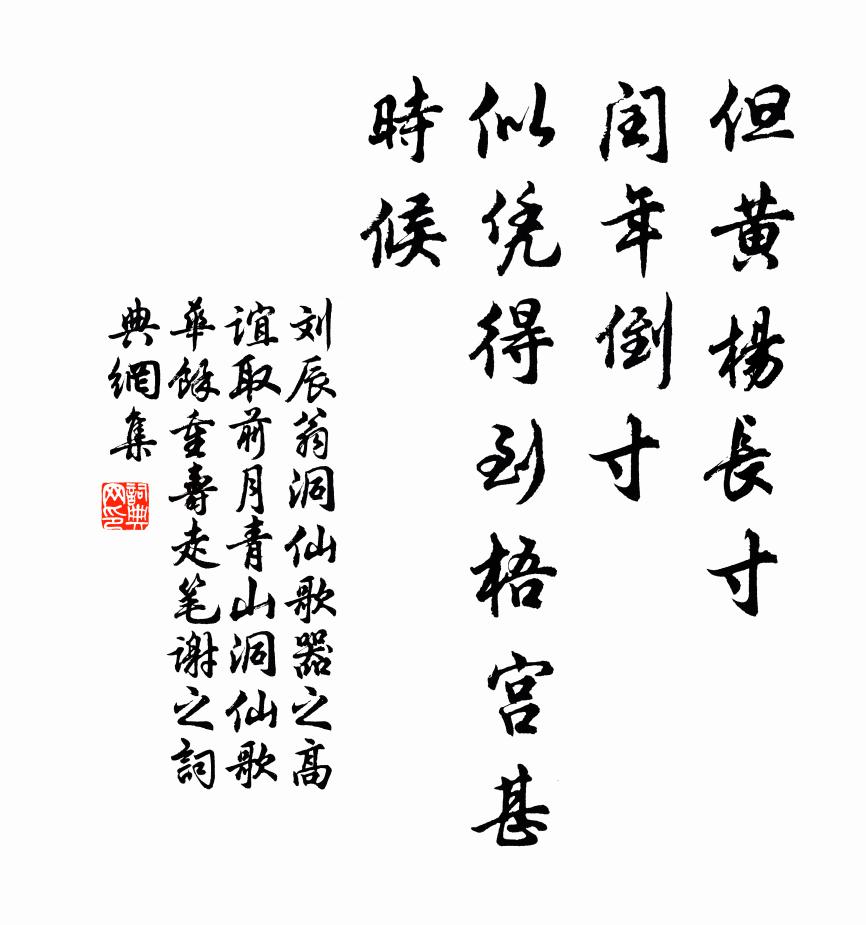 但黄楊長寸
闰年倒寸
似凭得到梧宫甚
時候
刘辰翁洞仙歌器之高
谊取前月青山洞仙歌
華餘重壽走笔谢之詞
典網集
詞典
网印